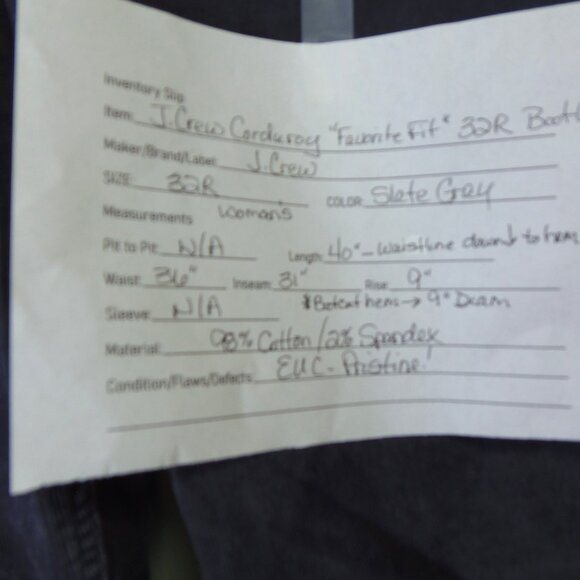 Inventory Slip
Item: J. Crew Corduroy "Favorite Fit" 32R Boot
Maker/Brand/Label J. Crew
SIZE: 32R COLOR Slate Gray
Measurements Womans
Pit to Pit: N/A Length: 40" - Waistline down to hem
Waist: 36" Inseam: 31" Rise: 9"
Sleeve: N/A hems → 9" Diam
Material: 98% Cotton/2% Spandex
Condition/Flaws/Defects: EUC - Pristine!